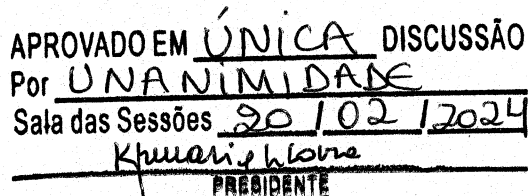 APROVADO EM ÚNICA DISCUSSÃO
Por UNANIMIDADE
Sala das Sessões 20 / 02 / 2024
PRESIDENTE